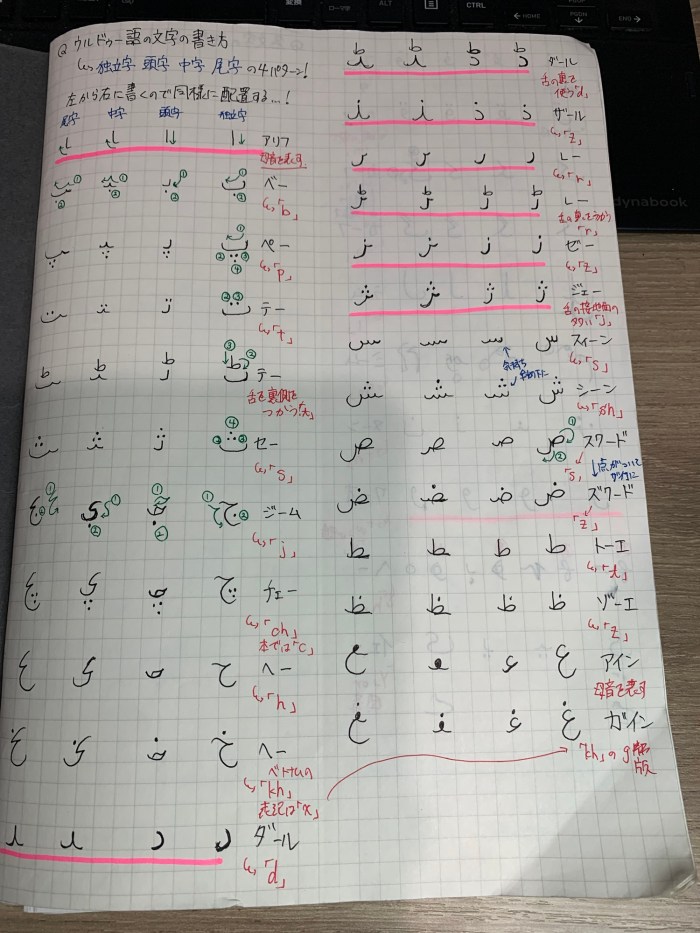 Q ウルドゥー語の文字の書き方
↳ 独立字 頭字 中字 尾字 の4パターン!
左から右に書くので同様に配置する…!
尾字 中字 頭字 独立字
アリフ
母音を表す
ب ベー
↳「b」
پ ペー
↳「p」
ت テー
↳「t」
ٹ テー
舌を裏側を
つかう点
ث セー
↳「s」
ج ジーム
↳「j」
چ チェー
↳「ch」
本では「c」
ح ヘー
↳「h」
خ ヘー
ベトナムの
↳「kh」
表記は「x」
د ダール
↳「d」
ڈ ダール
舌の裏で
使う「d」
ذ ザール
↳「z」
ر レー
↳「r」
ڑ レー
「r」
ز ゼー
↳「z」
ژ ジェー
舌の接地面の
多い「j」
س スィーン
↳「s」
気持ち
斜め下に
ش シーン
↳「sh」
ص スワード
「s」
点がついて
ض ズワード
「z」
ط トーエ
↳「t」
ظ ゾーエ
↳「z」
ع アイン
母音を表す
غ ガイン
「kh」のg
版
CTRL
ALT
変換
ローマ字
HOME
PGDN
END
dynabook